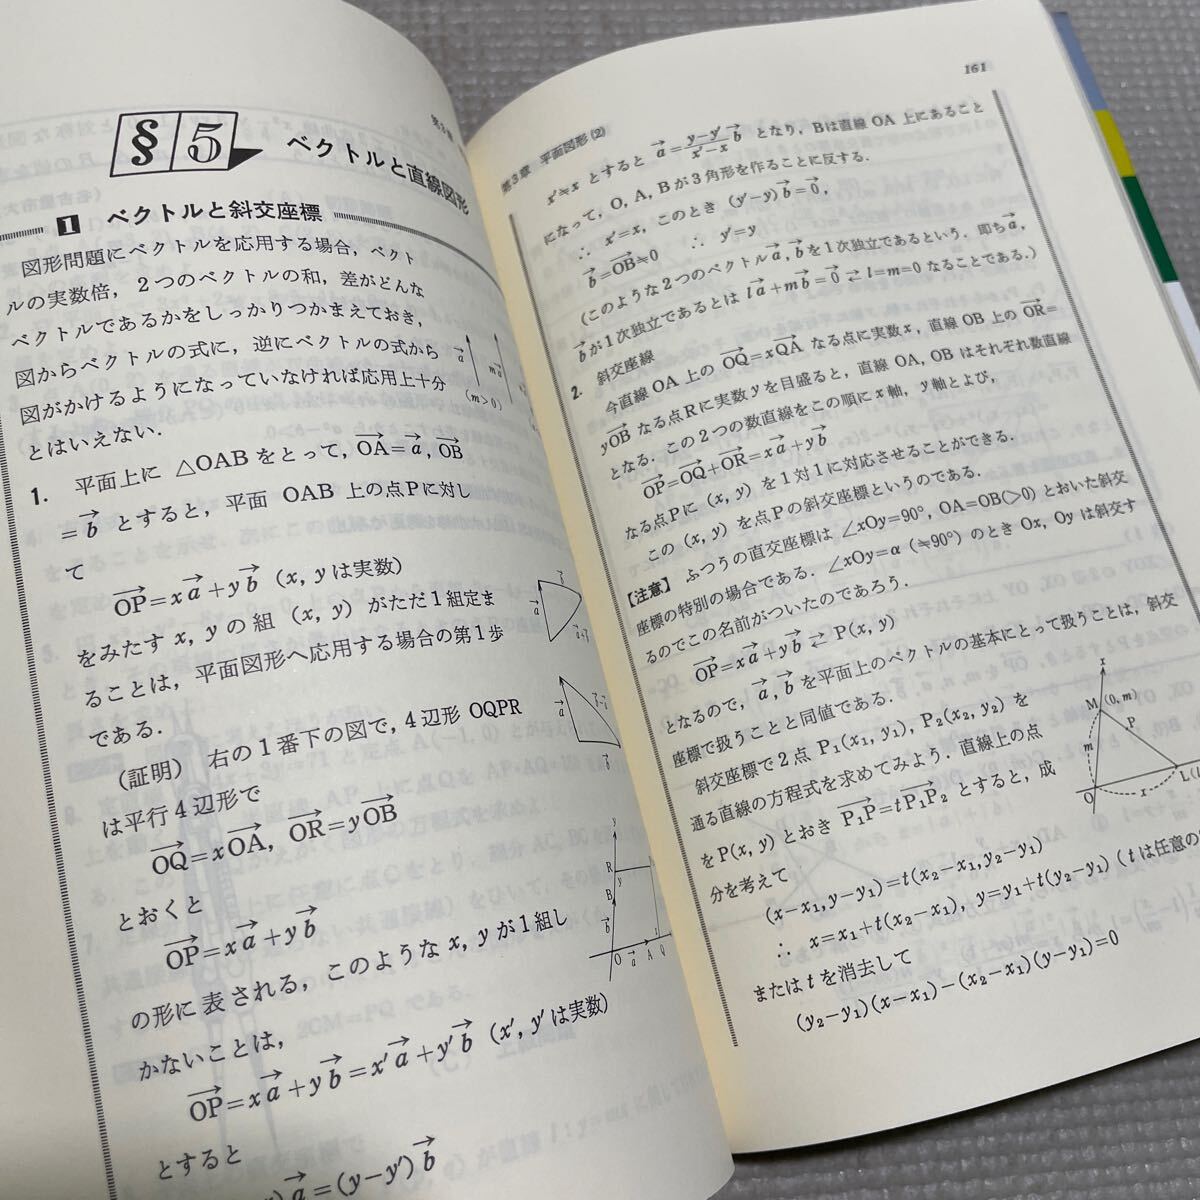 §5 ベクトルと直線図形
1 ベクトルと斜交座標
図形問題にベクトルを応用する場合，ベクト
ルの実数倍，２つのベクトルの和，差がどんな
ベクトルであるかをしっかりつかまえておき，
図からベクトルの式に，逆にベクトルの式から
図がかけるようになっていなければ応用上十分
とはいえない．
1. 平面上に △OAB をとって，OA→=a→，OB→
=b→ とすると，平面 OAB 上の点Pに対し
て
OP→=xa→+yb→ (x, y は実数)
をみたす x, y の組 (x, y) がただ１組定ま
ることは，平面図形へ応用する場合の第１歩
である．
(証明) 右の１番下の図で，４辺形 OQPR
は平行４辺形で
OQ→=xOA→, OR→=yOB→
とおくと
OP→=xa→+yb→
の形に表される，このような x, y が１組し
かないことは，
OP→=xa→+yb→=x′a→+y′b→ (x′, y′ は実数)
とすると
a→=(y−y′)b→
a→
ma→
(m>0)
R
y
B
b→
O a→ A Q
161
第３章 平面図形(2)
x′≒x とすると a→=(y−y′)/(x′−x) b→ となり，Bは直線 OA 上にあること
になって，O, A, B が３角形を作ることに反する．
∴ x′=x，このとき (y′−y)b→=0→，
b→=OB→≒0 ∴ y′=y
(このような２つのベクトル a→, b→ を１次独立であるという，即ち a→,
b→ が１次独立であるとは la→+mb→=0→ ⇄ l=m=0 なることである．)
2. 斜交座線
今直線 OA 上の OQ→=xQA→ なる点に実数 x，直線 OB 上の OR→=
yOB→ なる点Rに実数 y を目盛ると，直線 OA, OB はそれぞれ数直線
となる．この２つの数直線をこの順に x 軸，y 軸とよび，
OP→=OQ→+OR→=xa→+yb→
なる点Pに (x, y) を１対１に対応させることができる．
この (x, y) を点Pの斜交座標というのである．
【注意】 ふつうの直交座標は ∠xOy=90°, OA=OB(>0) とおいた斜交
座標の特別の場合である．∠xOy=α (≒90°) のとき Ox, Oy は斜交す
るのでこの名前がついたのであろう．
OP→=xa→+yb→ ⇄ P(x, y)
となるので，a→, b→ を平面上のベクトルの基本にとって扱うことは，斜交
座標で扱うことと同値である．
斜交座標で２点 P₁(x₁, y₁), P₂(x₂, y₂) を
通る直線の方程式を求めてみよう．直線上の点
を P(x, y) とおき P₁P→=tP₁P₂→ とすると，成
分を考えて
(x−x₁, y−y₁)=t(x₂−x₁, y₂−y₁)
∴ x=x₁+t(x₂−x₁), y=y₁+t(y₂−y₁) (t は任意の
または t を消去して
(y₂−y₁)(x−x₁)−(x₂−x₁)(y−y₁)=0
M (0, m)
P
m
O
L